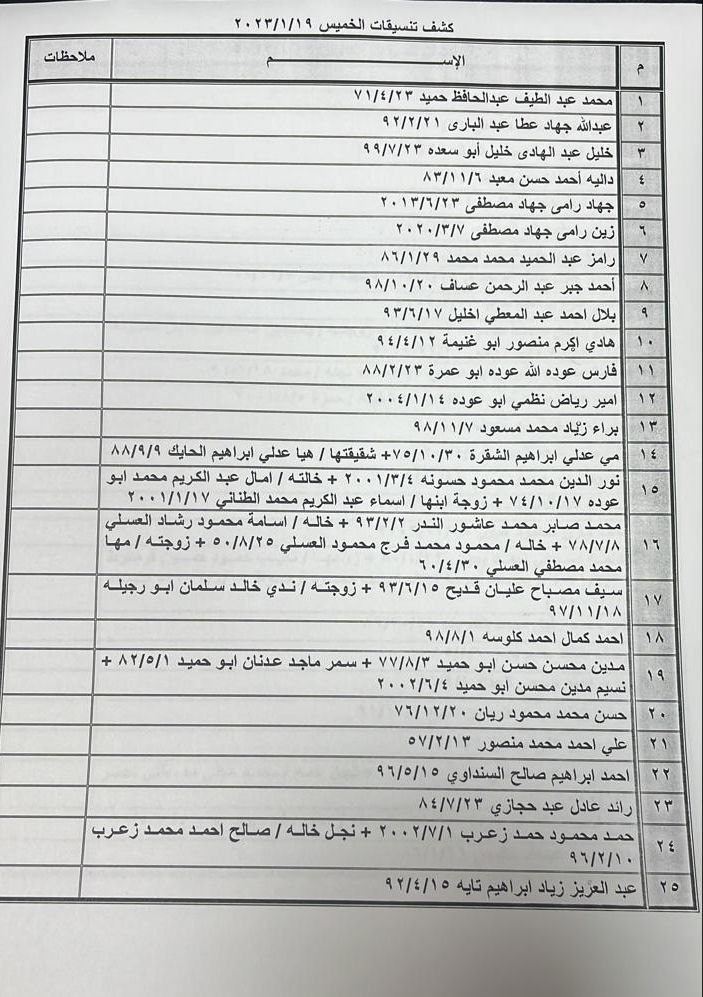 كشف تنسيقات الخميس ٢٠٢٣/١/١٩
م الإســــــــــــم ملاحظات
١ محمد عبد الطيف عبدالحافظ حميد ٧١/٤/٢٣
٢ عبدالله جهاد عطا عبد البارى ٩٢/٢/٢١
٣ خليل عبد الهادى خليل أبو سعده ٩٩/٧/٢٣
٤ داليه أحمد حسن معبد ٨٣/١١/٦
٥ جهاد رامى جهاد مصطفى ٢٠١٣/٦/٢٣
٦ زين رامى جهاد مصطفى ٢٠٢٠/٣/٧
٧ رامز عبد الحميد محمد محمد ٨٦/١/٢٩
٨ أحمد جبر عبد الرحمن عساف ٩٨/١٠/٢٠
٩ بلال احمد عبد المعطي اخليل ٩٣/٦/١٧
١٠ هادي اكرم منصور ابو غنيمة ٩٤/٤/١٢
١١ فارس عوده الله عوده ابو عمرة ٨٨/٢/٢٣
١٢ امير رياض نظمي ابو عوده ٢٠٠٤/١/١٤
١٣ براء زياد محمد مسعود ٩٨/١١/٧
١٤ مي عدلي ابراهيم الشقرة ٧٥/١٠/٣٠+ شقيقتها / هيا عدلي ابراهيم الحايك ٨٨/٩/٩
١٥ نور الدين محمد محمود حسونه ٢٠٠١/٣/٤ + خالته / امال عبد الكريم محمد ابو
عوده ٧٤/١٠/١٧ + زوجة ابنها / اسماء عبد الكريم محمد الطناني ٢٠٠١/١/١٧
١٦ محمد صابر محمد عاشور الندر ٩٣/٢/٢ + خاله / اسامة محمود رشاد العسلي
٧٨/٧/٨ + خاله / محمود محمد فرج محمود العسلي ٥٠/٨/٢٥ + زوجته / مها
محمد مصطفي العسلي ٦٠/٤/٣٠
١٧ سيف مصباح عليان قديح ٩٣/٦/١٥ + زوجته / ندي خالد سلمان ابو رجيله
٩٧/١١/١٨
١٨ احمد كمال احمد كلوسه ٩٨/٨/١
١٩ مدين محسن حسن ابو حميد ٧٧/٨/٣ + سمر ماجد عدنان ابو حميد ٨٢/٥/١ +
نسيم مدين محسن ابو حميد ٢٠٠٢/٦/٤
٢٠ حسن محمد محمود ريان ٧٦/١٢/٢٠
٢١ علي احمد محمد منصور ٥٧/٢/١٣
٢٢ احمد ابراهيم صالح السنداوي ٩٦/٥/١٥
٢٣ رائد عادل عبد حجازي ٨٤/٧/٢٣
٢٤ حمد محمود حمد زعرب ٢٠٠٢/٧/١ + نجل خاله / صالح احمد محمد زعرب
٩٦/٢/١٠
٢٥ عبد العزيز زياد ابراهيم تايه ٩٢/٤/١٥